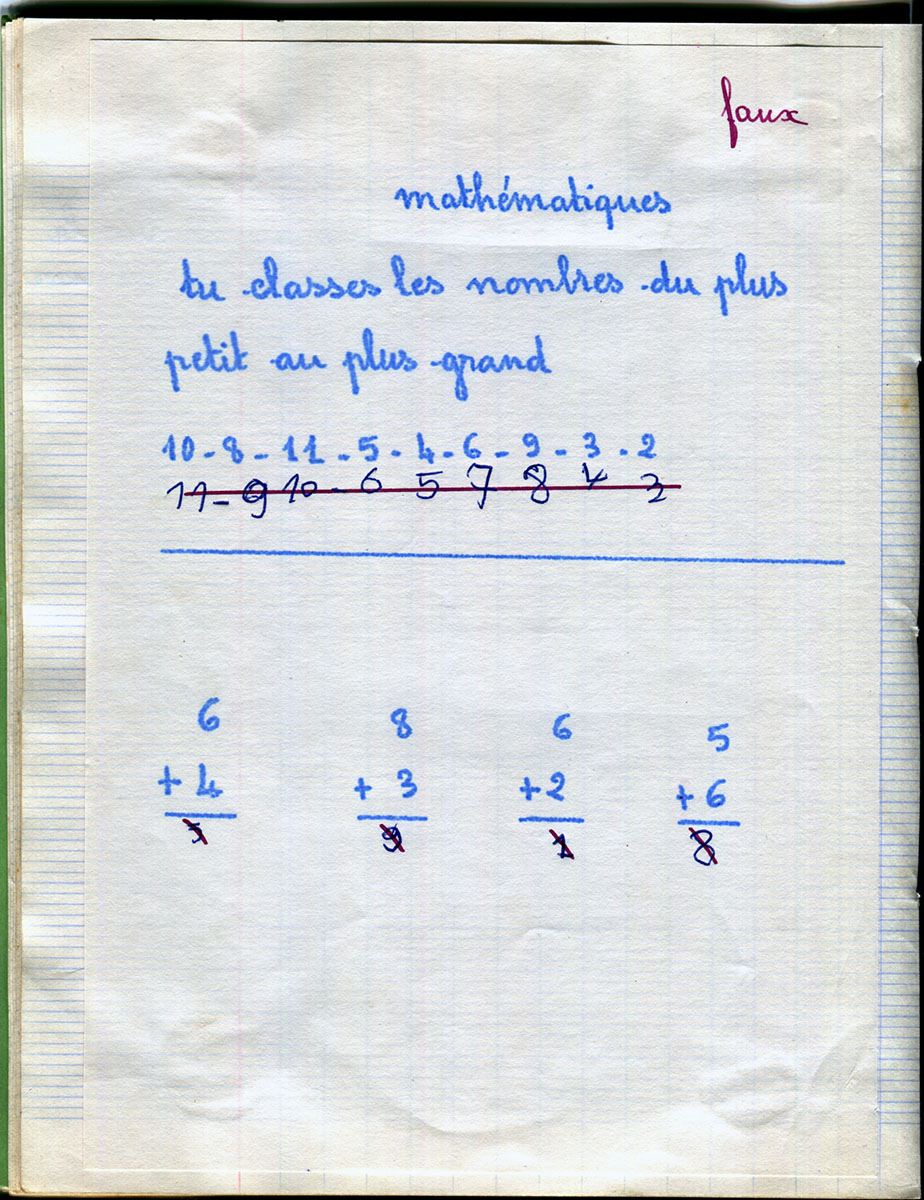 faux
mathématiques
tu classes les nombres du plus
petit au plus grand
10 - 8 - 11 - 5 - 4 - 6 - 9 - 3 - 2
11 - 9 10 - 6 5 7 8 4 3
6 8 6 5
+ 4 + 3 + 2 + 6
9 8